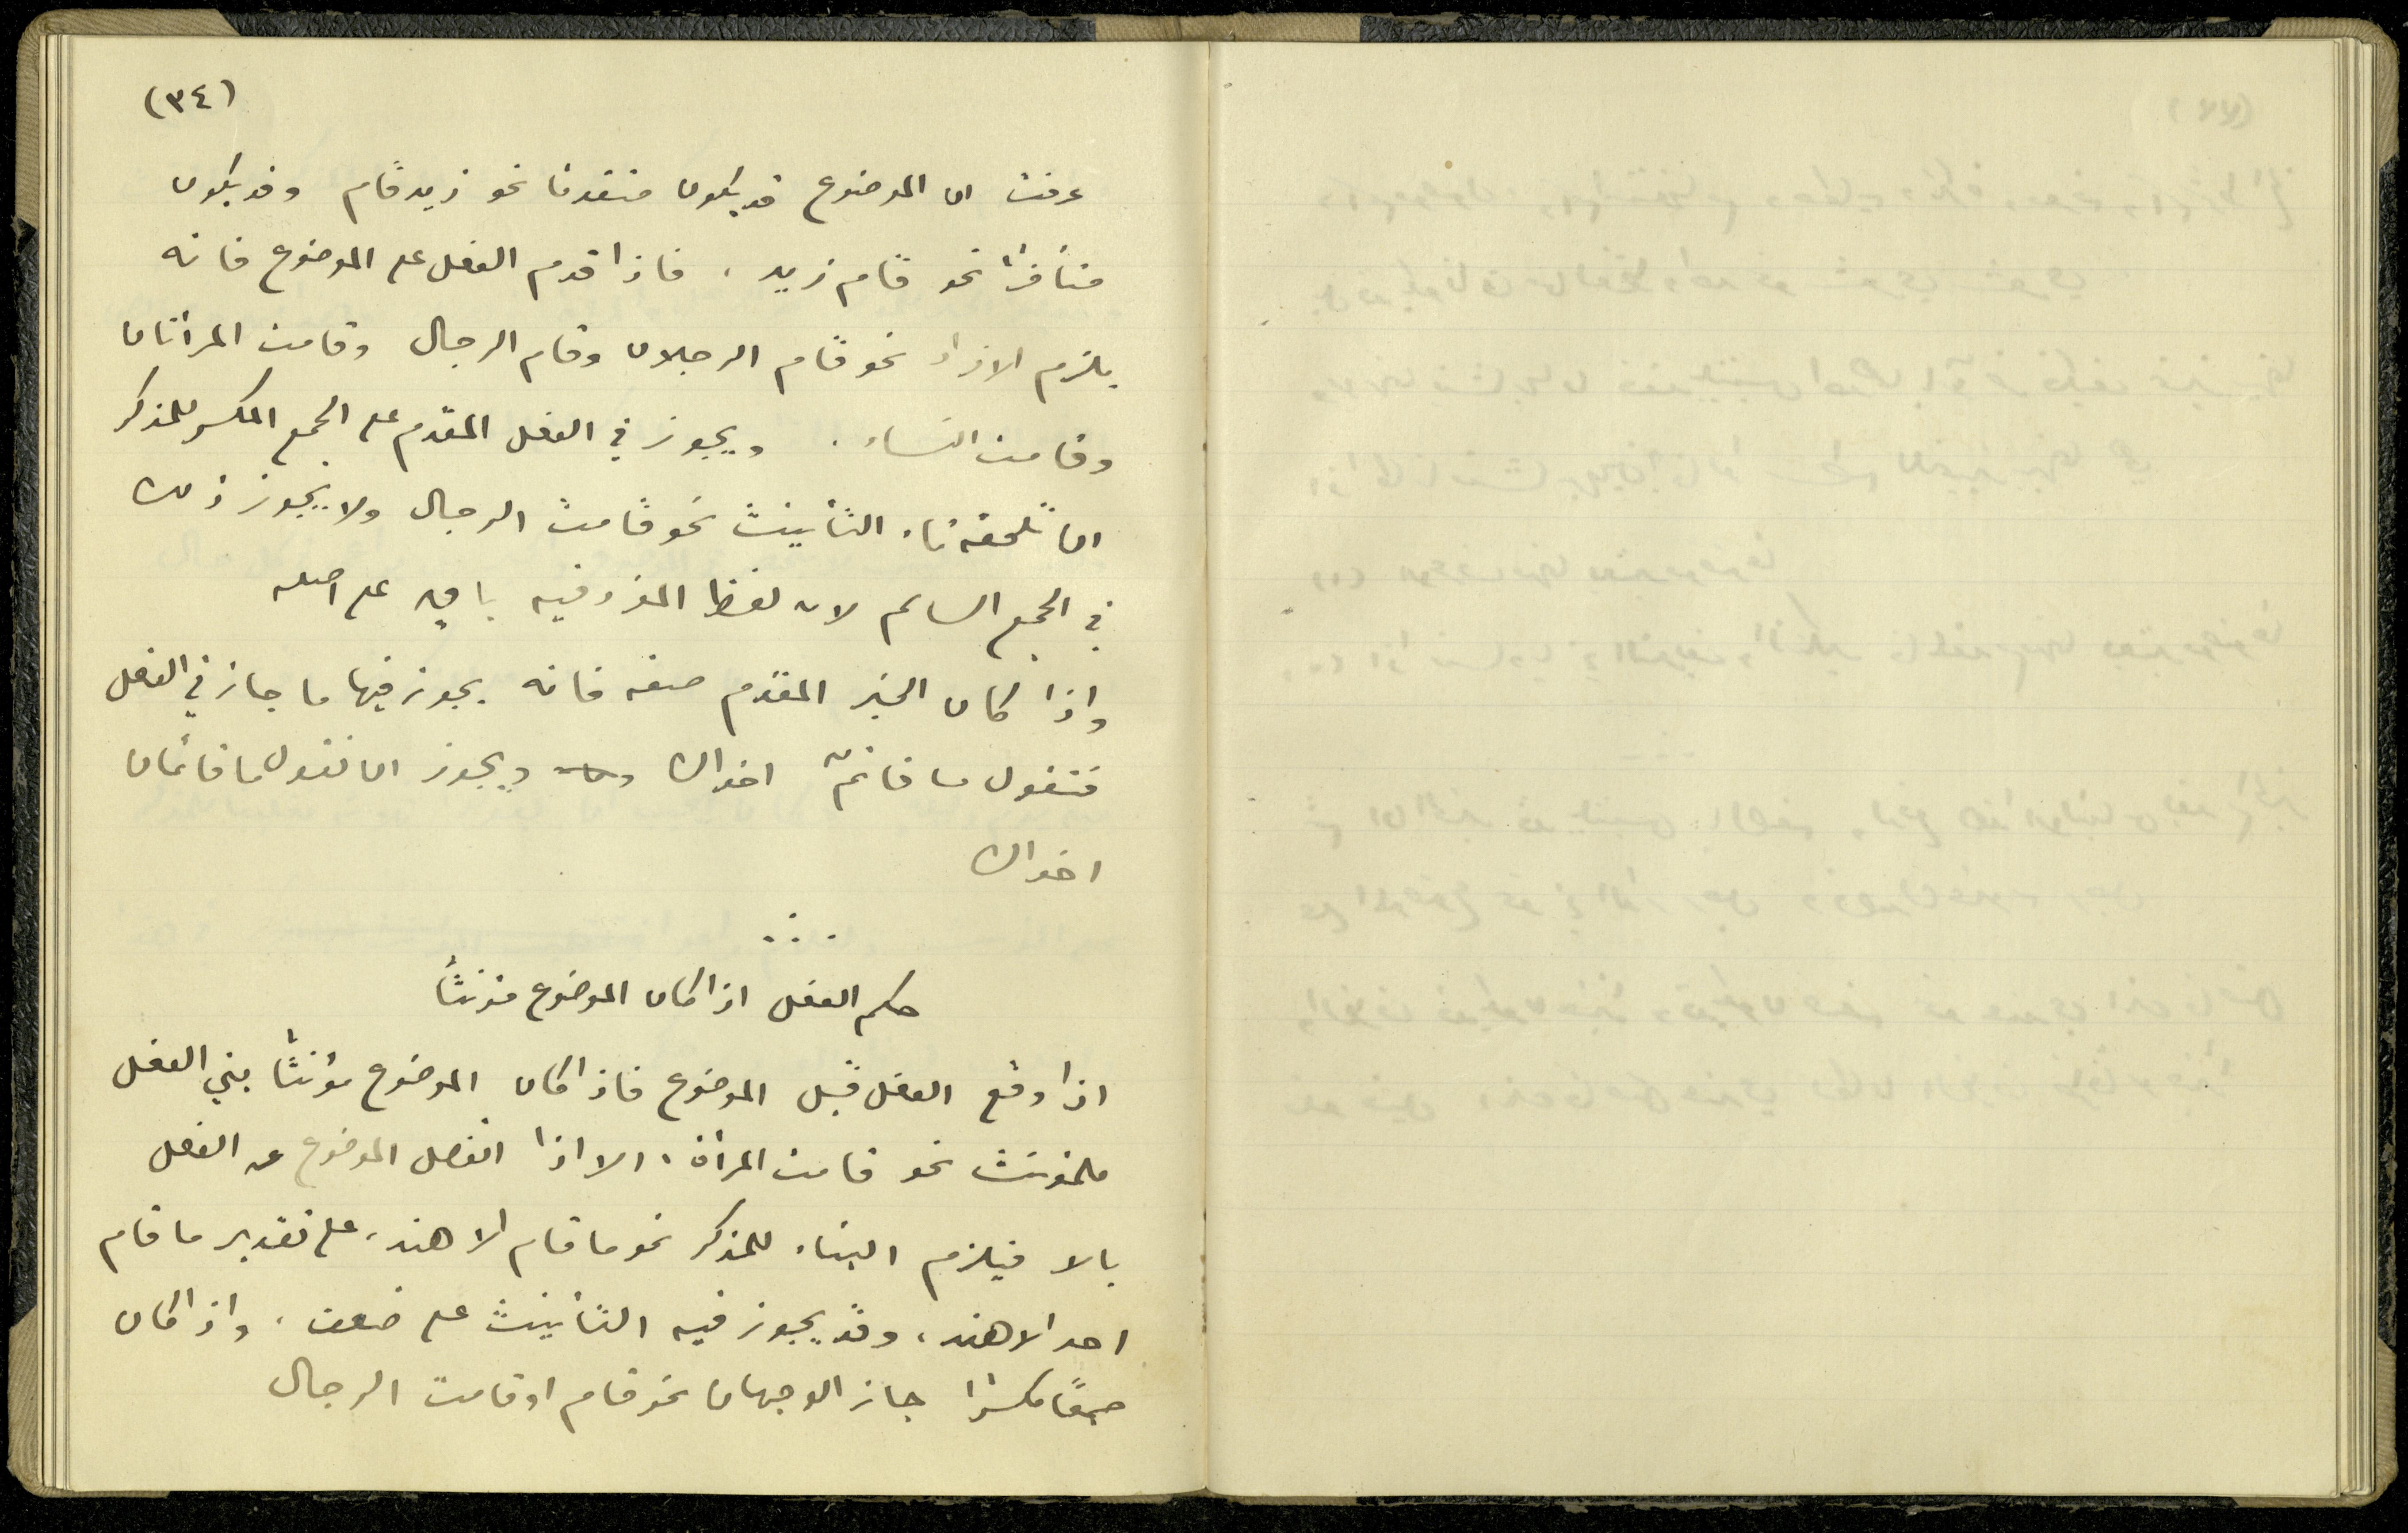 (٣٤)
عرفت ان الموضوع قد يكون متقدما نحو زيد قام وقد يكون
متأخرًا نحو قام زيد، فاذا قدم الفعل على الموضوع فانه
يلزم الافراد نحو قام الرجلان وقام الرجال وقامت المرأتان
وقامت النساء. ويجوز في الفعل المقدم على الجمع المكسر للمذكر
ان تلحقه تاء التأنيث نحو قامت الرجال ولا يجوز ذلك
في الجمع السالم لان لفظ المفرد فيه باقٍ على اصله
واذا كان الخبر المقدم صفة فانه يجوز فيها ما جاز في الفعل
فتقول ما قائمٌ اخواك ويجوز ان تقول ما قائمان
اخواك
حكم الفعل اذا كان الموضوع مؤنثًا
اذا وقع الفعل قبل الموضوع فاذا كان الموضوع مؤنثًا بني الفعل
للمؤنث نحو قامت المرأة، الا اذا انفصل الموضوع عن الفعل
بالا فيلزم البناء للمذكر نحو ما قام الا هند، على تقدير ما قام
احد الا هند، وقد يجوز فيه التأنيث على ضعف، واذا كان
جمعًا مكسرًا جاز الوجهان نحو قام او قامت الرجال